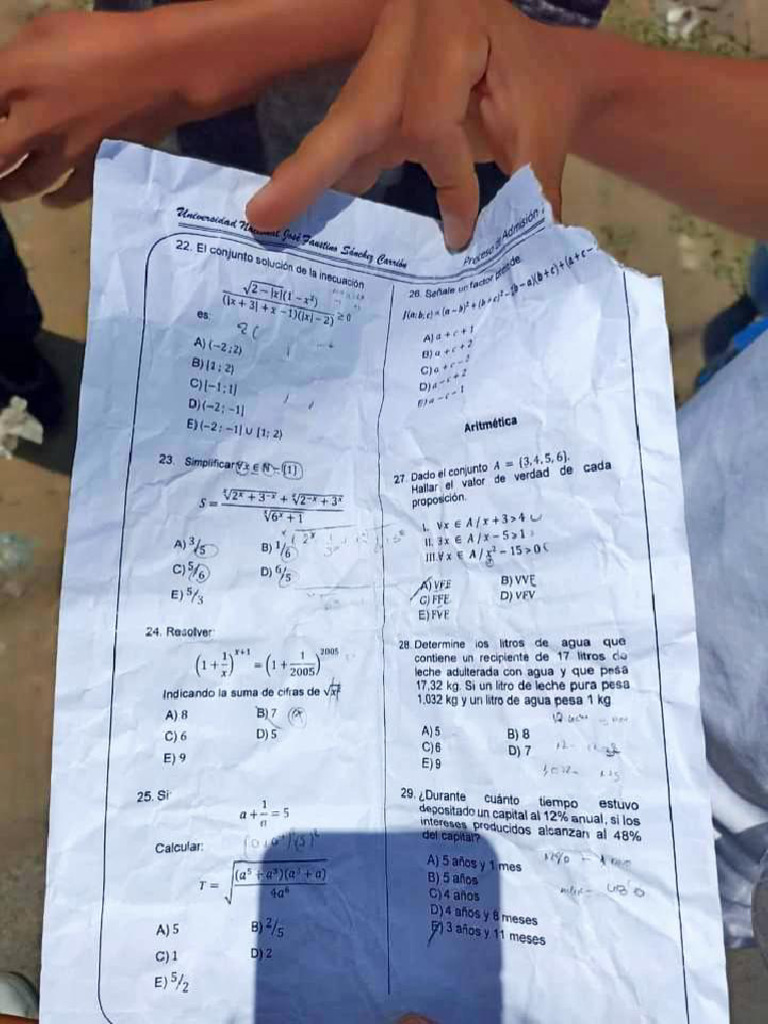 Universidad Nacional José Faustino Sánchez Carrión
Proceso de Admisión
22. El conjunto solución de la inecuación
√(2 − |x|)(1 − x²) / (|x + 3| + x − 1)(|x| − 2) ≥ 0
es:
A) ⟨−2; 2⟩
B) [1; 2⟩
C) [−1; 1]
D) ⟨−2; −1]
E) ⟨−2; −1] ∪ [1; 2⟩
23. Simplificar ∀x ∈ N − {1}
A) 3/5
B) 1/6
C) 5/6
D) 6/5
E) 5/3
24. Resolver
(1 + 1/x)^(x+1) = (1 + 1/2005)^2005
Indicando la suma de cifras de
A) 8
B) 7
C) 6
D) 5
E) 9
25. Si
a + 1/a = 5
Calcular:
T = √((a⁵ + a³)(a³ + a) / 4a⁶)
A) 5
B) 2/5
C) 1
D) 2
E) 5/2
26. Señale un factor
A) a + c + 1
B) a + c + 2
C) a + c − 2
D) a − c + 2
E) a − c − 1
Aritmética
27. Dado el conjunto A = {3, 4, 5, 6}.
Hallar el valor de verdad de cada
proposición.
I. ∀x ∈ A / x + 3 > 4
II. ∃x ∈ A / x − 5 ≥ 1
III. ∀x ∈ A / x² − 15 > 0
A) VFF
B) VVF
C) FFF
D) VFV
E) FVF
28. Determine los litros de agua que
contiene un recipiente de 17 litros de
leche adulterada con agua y que pesa
17,32 kg. Si un litro de leche pura pesa
1,032 kg y un litro de agua pesa 1 kg
A) 5
B) 8
C) 6
D) 7
E) 9
29. ¿Durante cuánto tiempo estuvo
depositado un capital al 12% anual, si los
intereses producidos alcanzan al 48%
del capital?
A) 5 años y 1 mes
B) 5 años
C) 4 años
D) 4 años y 8 meses
E) 3 años y 11 meses